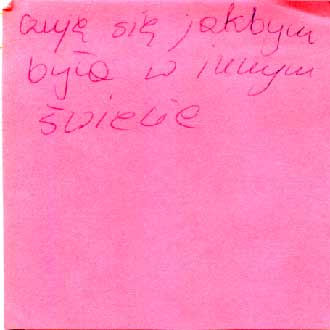 czuję się jakbym
była w innym
świecie